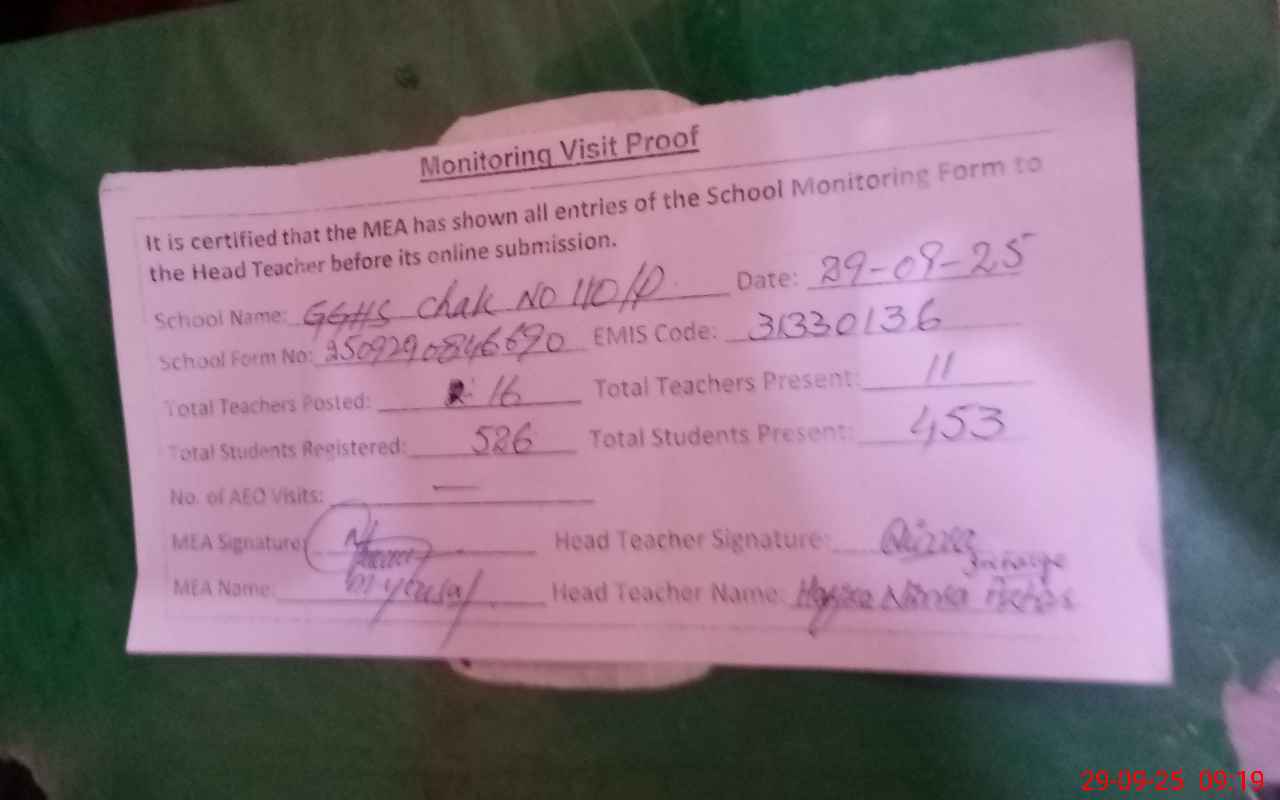 Monitoring Visit Proof
It is certified that the MEA has shown all entries of the School Monitoring Form to
the Head Teacher before its online submission.
School Name: GGHS Chak NO 110/P Date: 29-09-25
School Form No: 2509290846690 EMIS Code: 31330136
Total Teachers Posted: 16 Total Teachers Present: 11
Total Students Registered: 526 Total Students Present: 453
No. of AEO Visits: —
MEA Signature: Head Teacher Signature:
Incharge
MEA Name: M yousaf Head Teacher Name:
29-09-25 09:19